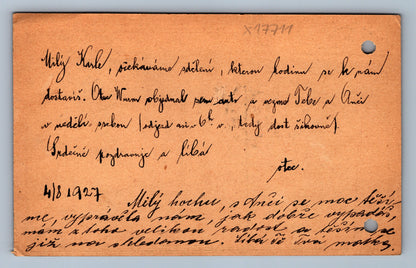 x17711
Milý Karle, očekáváme sdělení, kterou hodinu se k nám
dostavíš. Ota Wurm objednal auto, a vezme Tebe a Anči
v neděli sebou (odjezd asi - 6 h. v., tedy dost šikovně).
Srdečně pozdravuje a líbá
otec.
4/8 1927
Milý hochu, s Anči se moc těší-
me, vyprávěla nám, jak dobře vypadáš,
mám z toho velikou radost a těším se
již na shledanou. Líbá Tě Tvá matka.